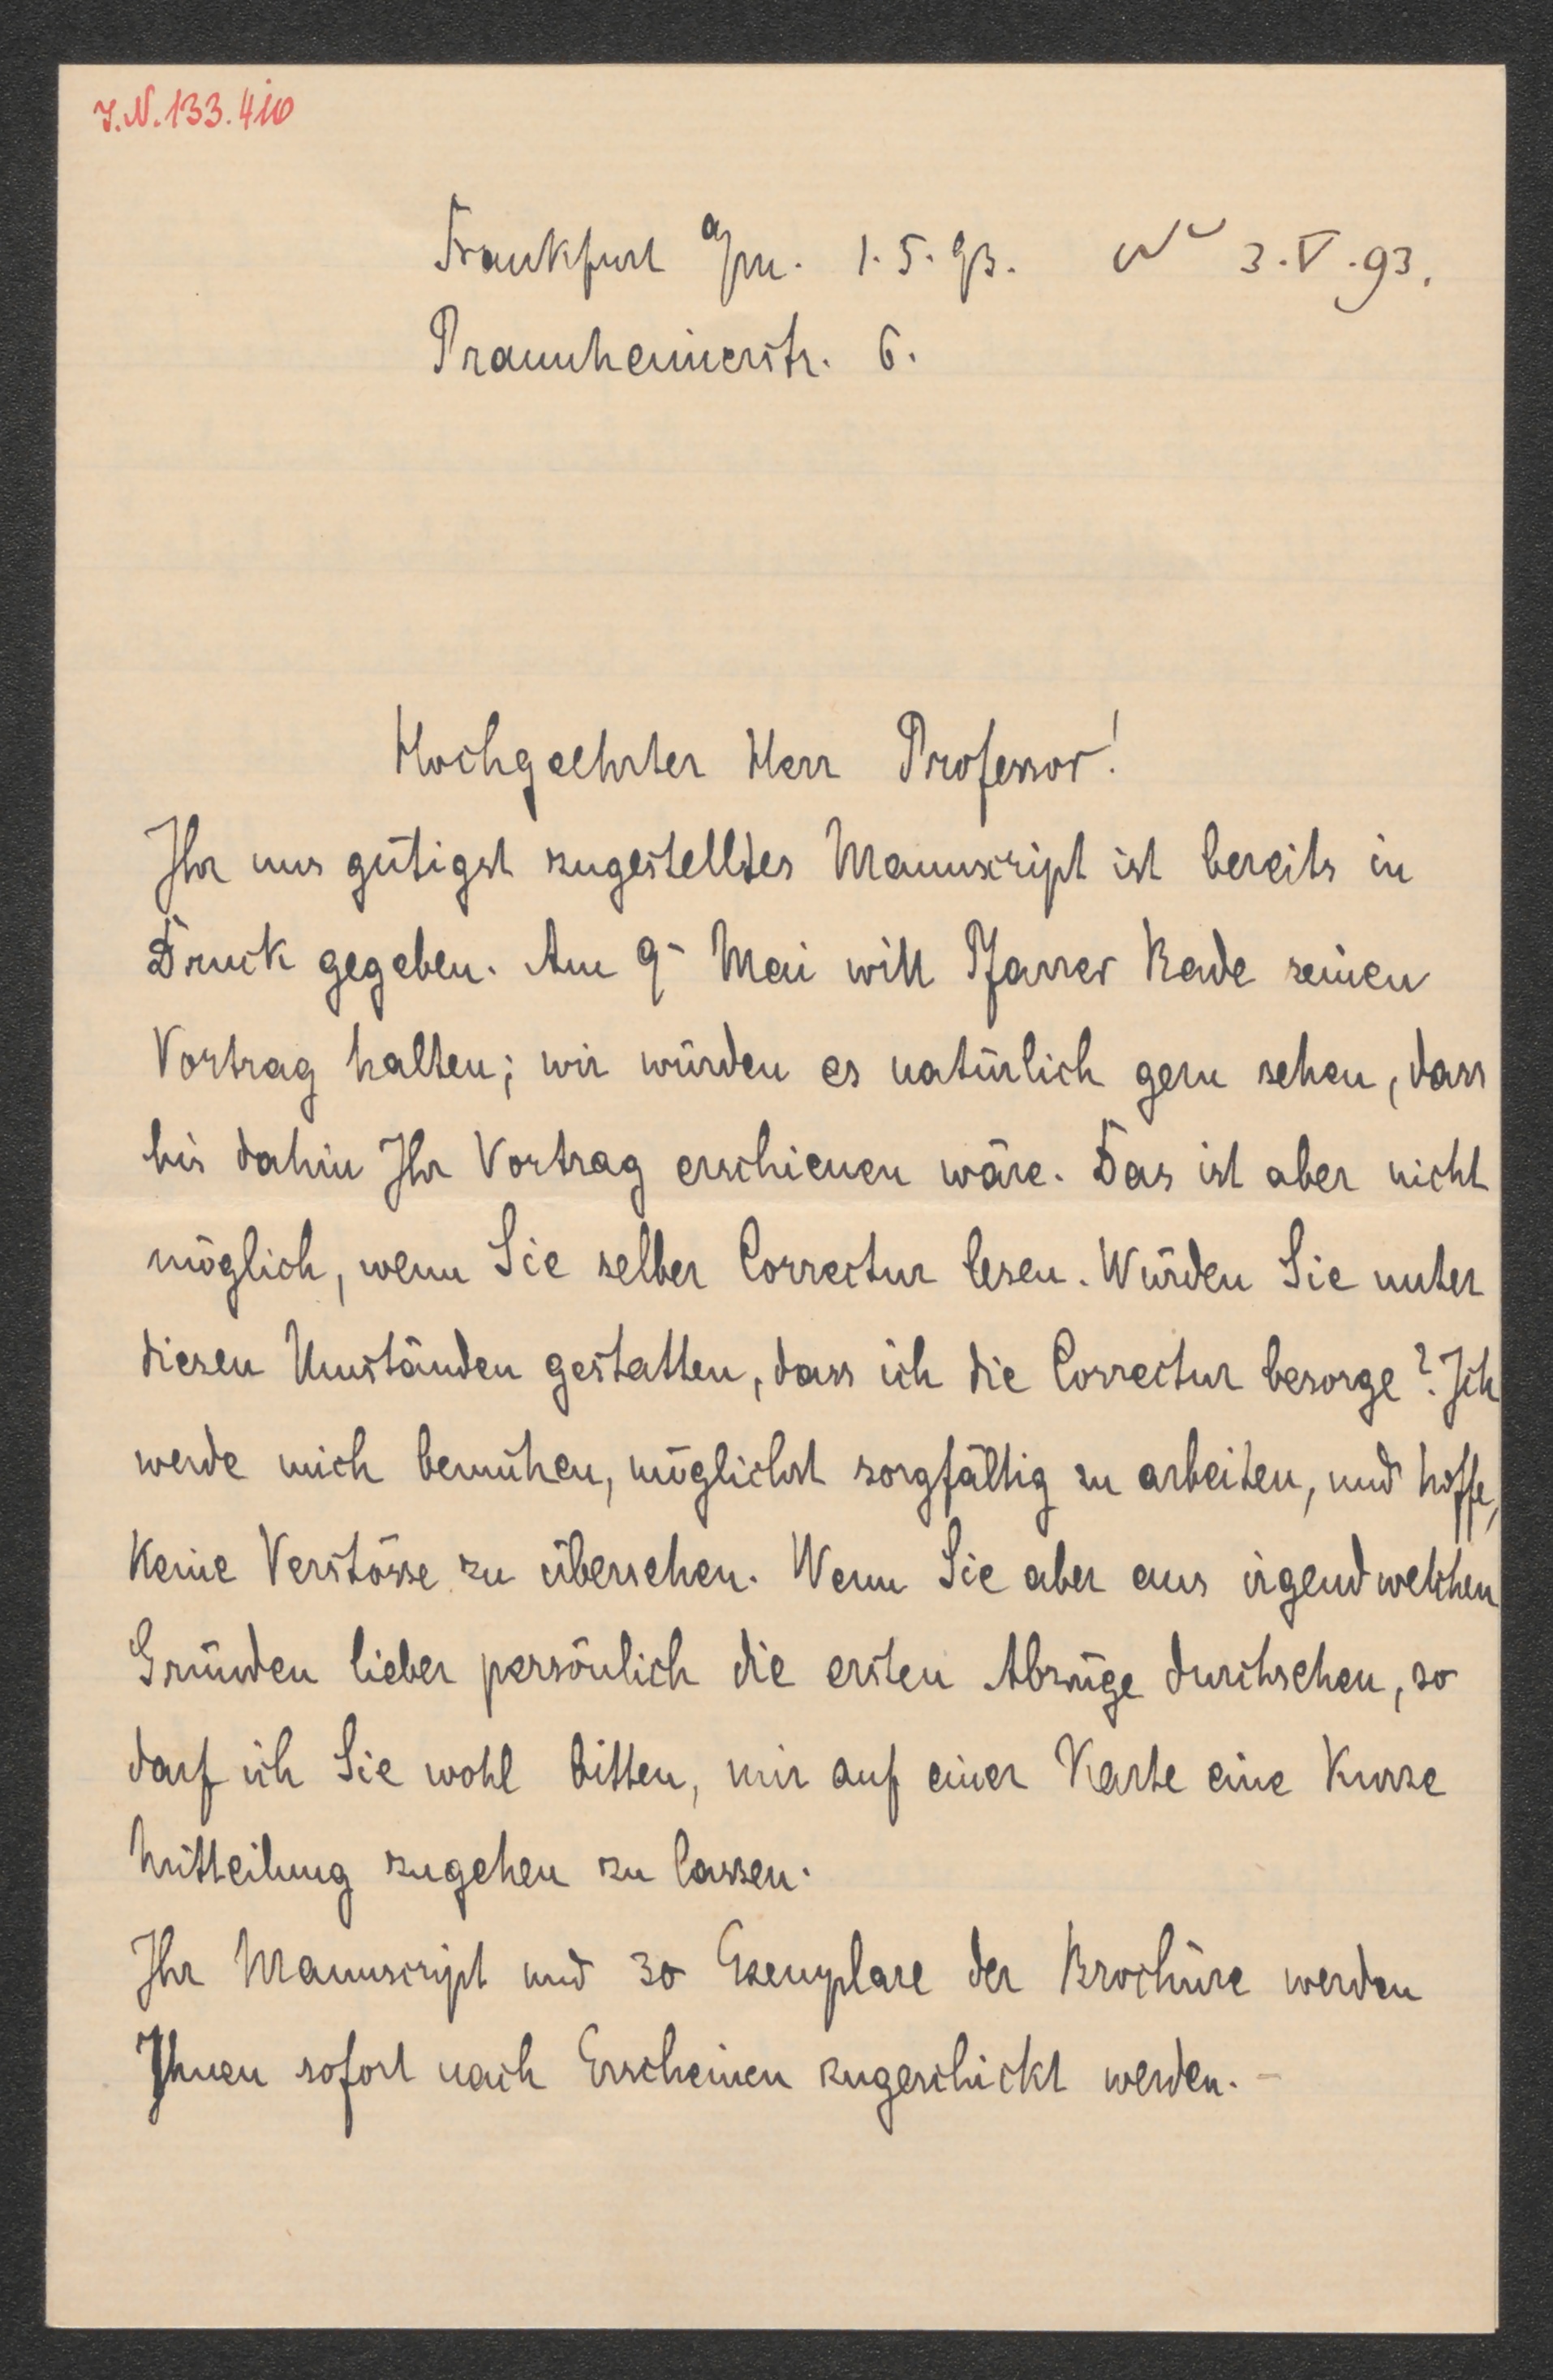 J.N. 133.410
Frankfurt a/m. 1. 5. 93. 3. V. 93.
Praunheimerstr. 6.
Hochgeehrter Herr Professor!
Ihr uns gütigst zugestelltes Manuscript ist bereits in
Druck gegeben. Am 9- Mai will Pfarrer Rade seinen
Vortrag halten; wir würden es natürlich gern sehen, dass
bis dahin Ihr Vortrag erschienen wäre. Das ist aber nicht
möglich, wenn Sie selber Correctur lesen. Würden Sie unter
diesen Umständen gestatten, dass ich die Correctur besorge? Ich
werde mich bemühen, möglichst sorgfältig zu arbeiten, und hoffe,
keine Verstösse zu übersehen. Wenn Sie aber aus irgendwelchen
Gründen lieber persönlich die ersten Abzüge durchsehen, so
darf ich Sie wohl bitten, mir auf einer Karte eine kurze
Mitteilung zugehen zu lassen.
Ihr Manuscript und 30 Exemplare der Brochüre werden
Ihnen sofort nach Erscheinen zugeschickt werden. -